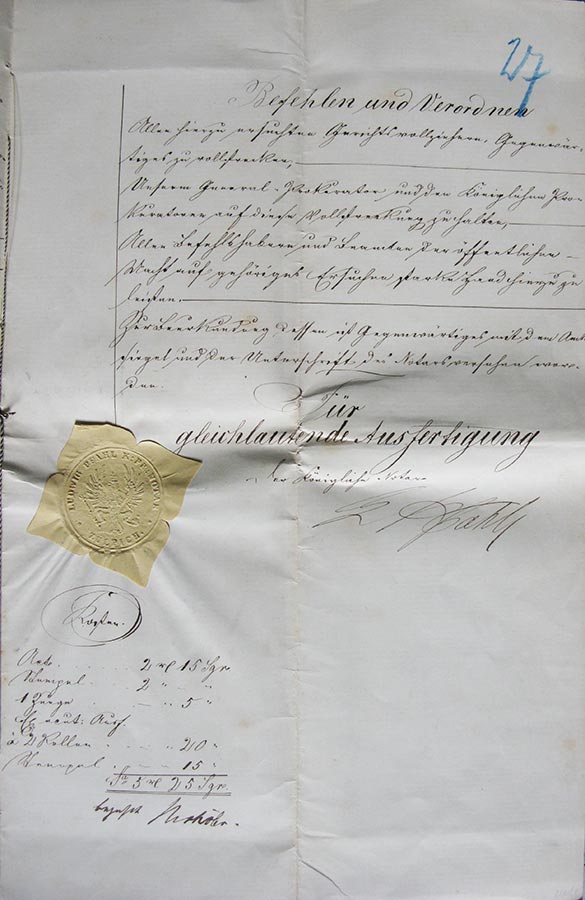 27
Befehlen und Verordnen
Allen hierzu ersuchten Gerichtsvollziehern, Gegenwär-
tiges zu vollstrecken,
Unserm General-Prokurator und den Königlichen Pro-
kuratoren auf diese Vollstreckung zu halten,
Allen Befehlshabern und Beamten der öffentlichen
Macht auf gehöriges Ersuchen starke Hand hierzu zu
leisten.
Zur Beurkundung dessen ist Gegenwärtiges mit dem Amts
siegel und der Unterschrift des Notars versehen wor-
den.
Für
gleichlautende Ausfertigung
Der Königliche Notar
L Pfahl
LUDWIG PFAHL K. PR. NOTAR
ZÜLPICH
Kosten.
2 rl 15 Sgr.
Stempel . . 2 " "
1 Zeuge . . — " 5 "
Ausf.
à 2 Rollen . — " 20 "
Stempel . — " 15 "
Sa 5 rl 25 Sgr.
bezahlt